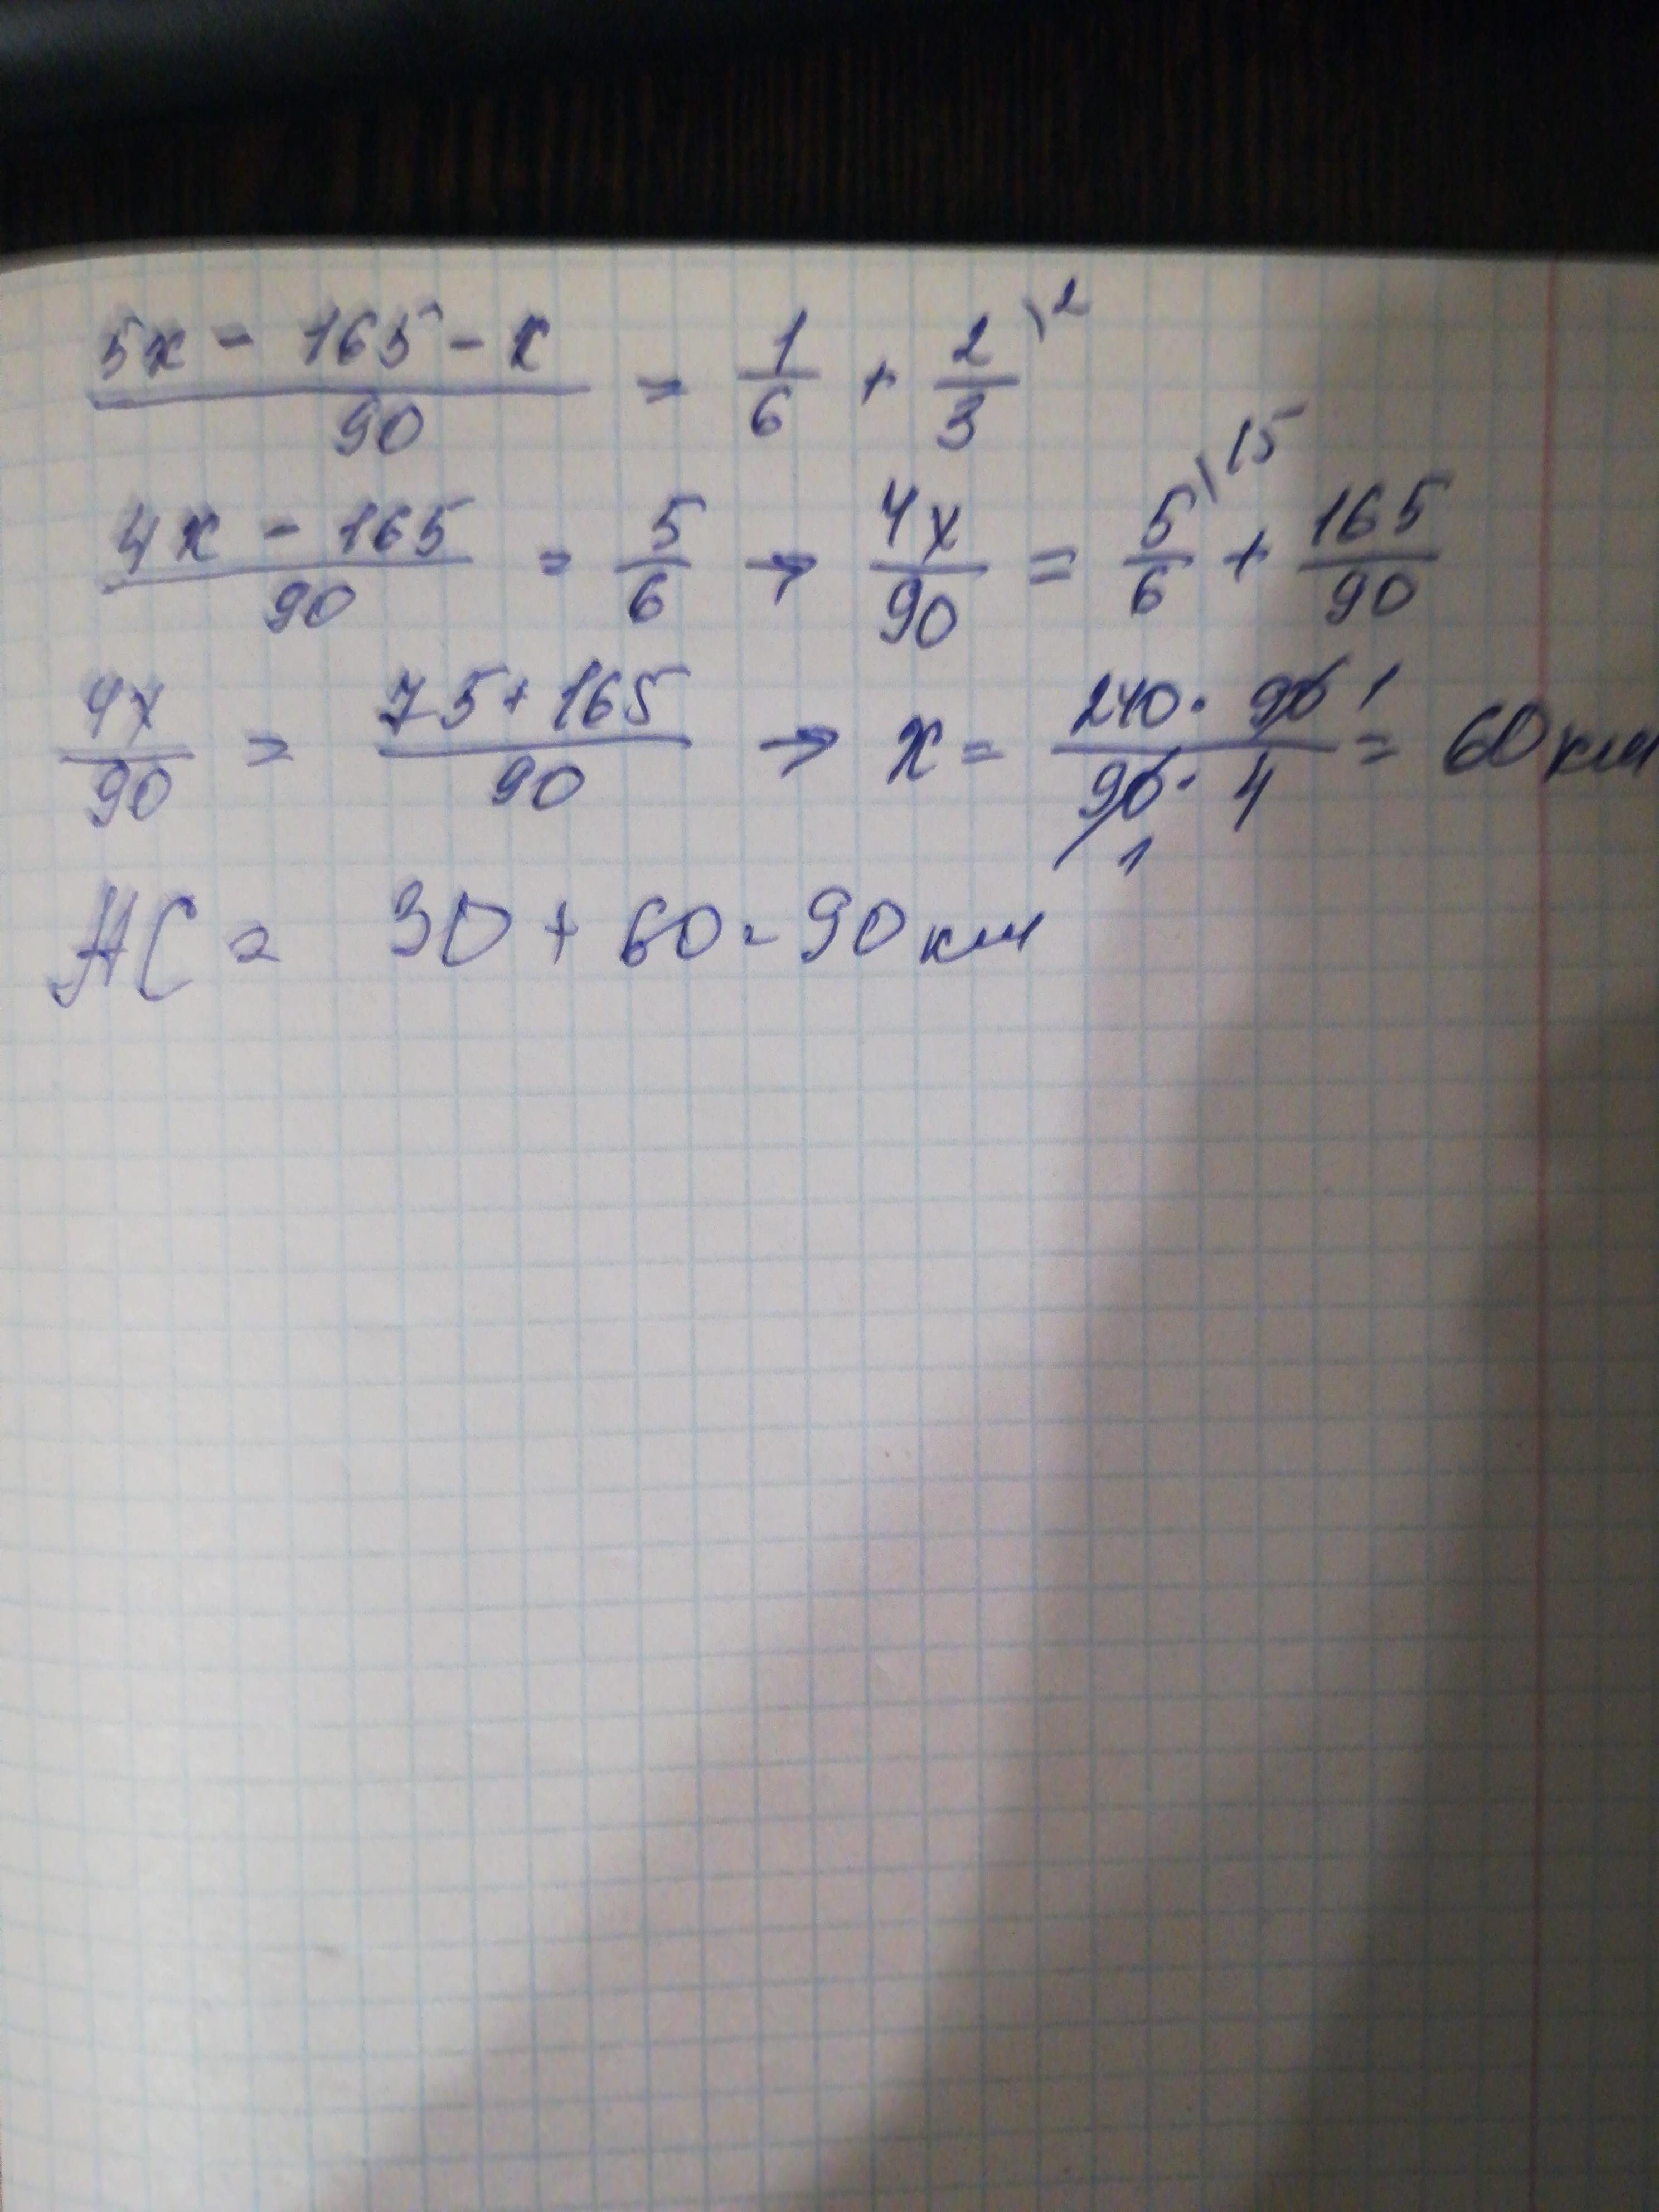 (5x - 165 - x)/90 = 1/6 + 2/3 \2
(4x - 165)/90 = 5/6 → 4x/90 = 5/6 \15 + 165/90
4x/90 = (75 + 165)/90 → x = (240 · 90 1)/(90 · 4 1) = 60 км
АС = 30 + 60 = 90 км